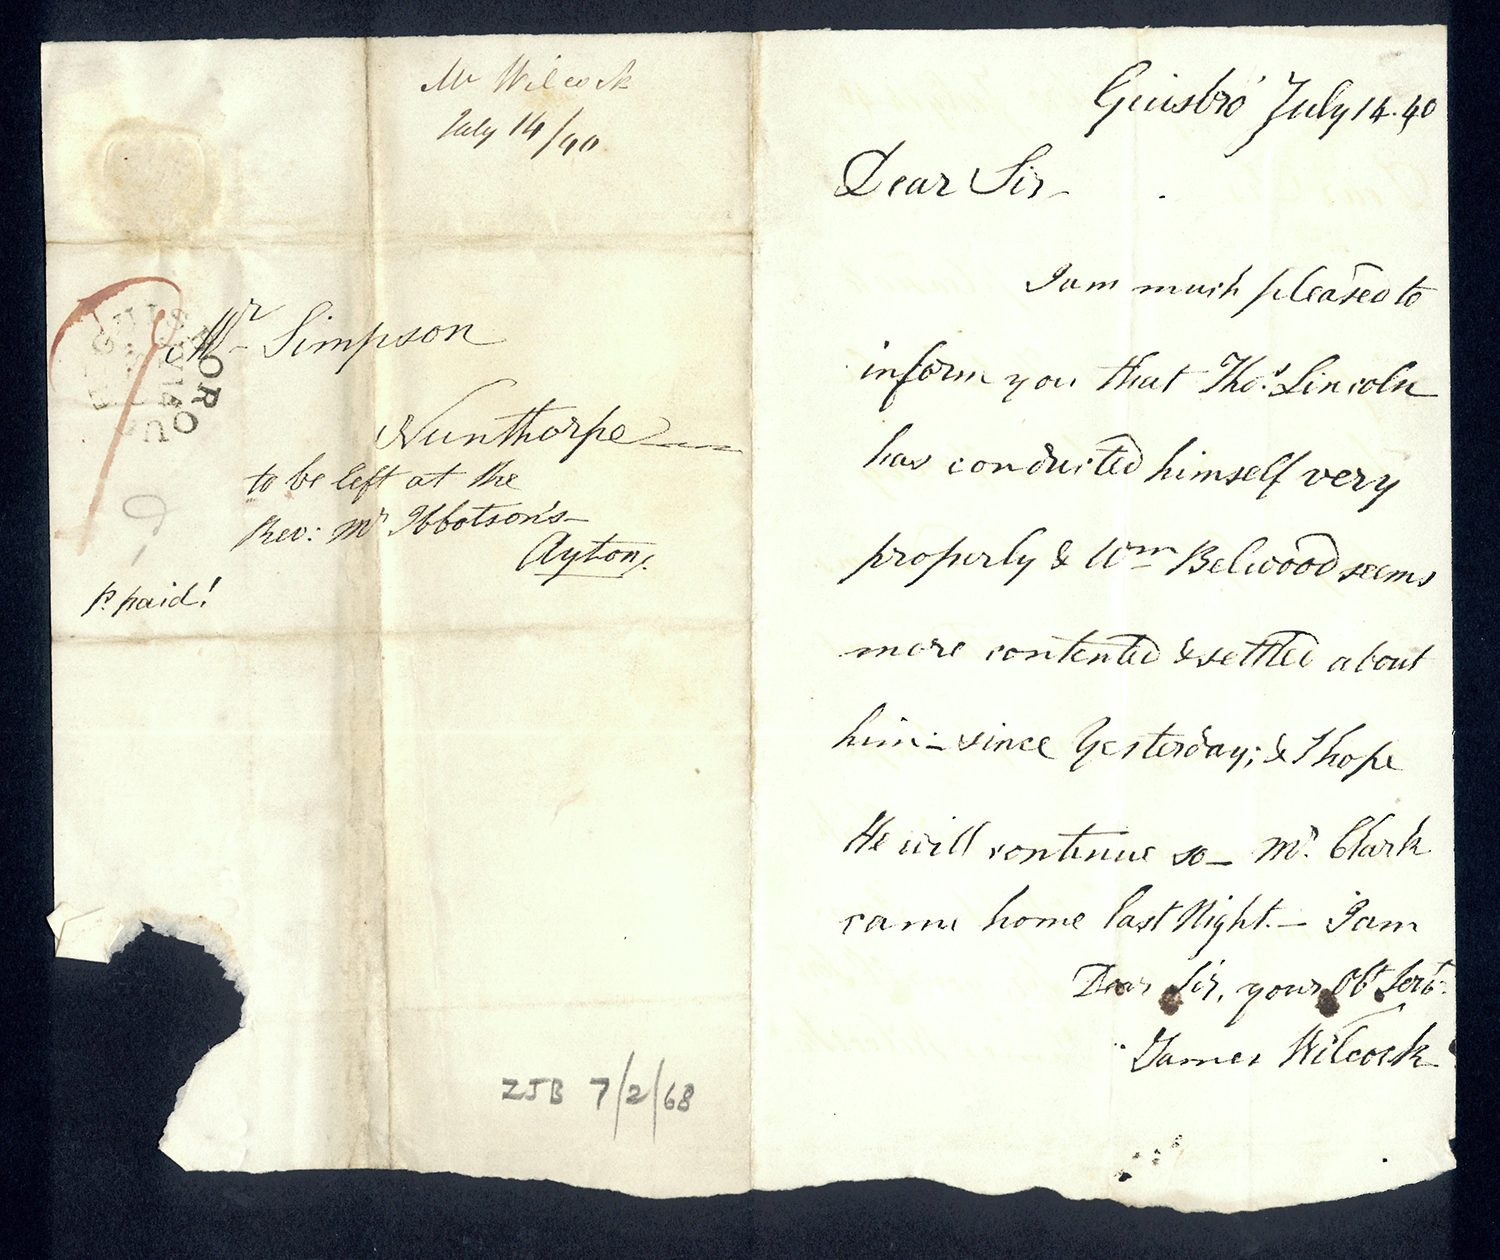 Mr Wilcock
July 14/40
Mr Simpson
Nunthorpe
to be left at the
Rev: Mr Ibbotson's
Ayton.
p. paid!
ZJB 7/2/68
Guisbro' July 14. 40
Dear Sir
I am much pleased to
inform you that Thos. Lincoln
has conducted himself very
properly & Wm Belwood seems
more contented & settled about
him - since Yesterday; & I hope
He will continue so - Mr. Clark
came home last Night. - I am
Dear Sir, your Obt Servt.
James Wilcock